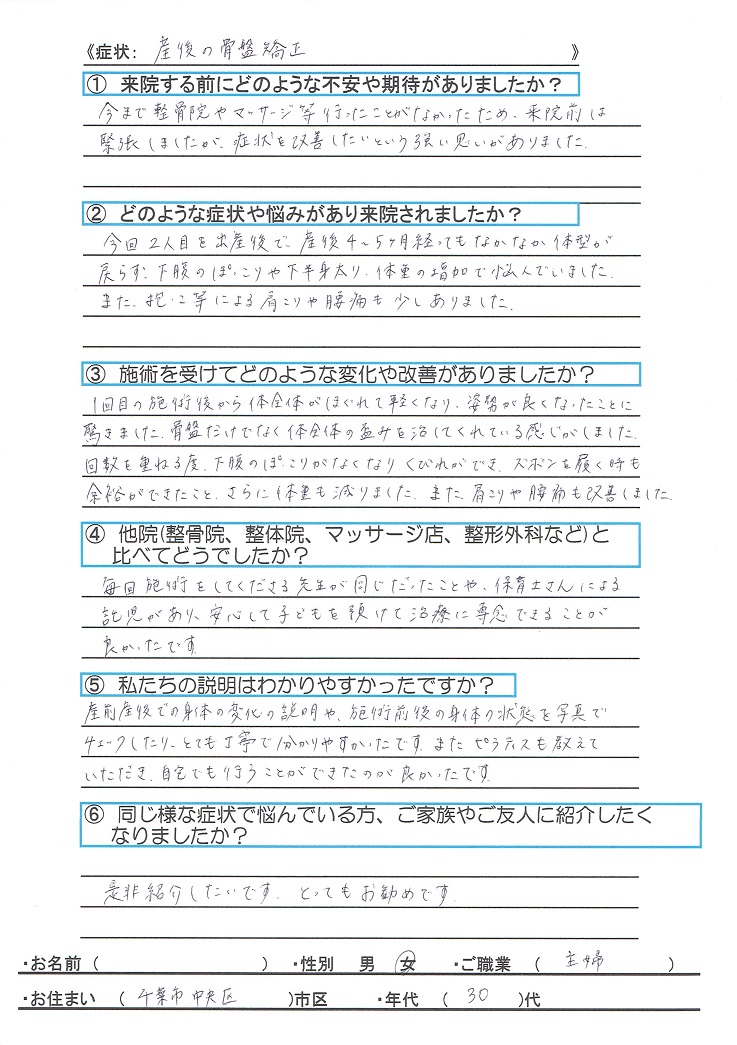 《症状: 産後の骨盤矯正 》
① 来院する前にどのような不安や期待がありましたか？
今まで整骨院やマッサージ等行ったことがなかったため、来院前は
緊張しましたが、症状を改善したいという強い思いがありました。
② どのような症状や悩みがあり来院されましたか？
今回2人目を出産後で、産後4〜5ヶ月経ってもなかなか体型が
戻らず、下腹のぽっこりや下半身太り、体重の増加で悩んでいました。
また、抱っこ等による肩こりや腰痛も少しありました。
③ 施術を受けてどのような変化や改善がありましたか？
1回目の施術後から体全体がほぐれて軽くなり、姿勢が良くなったことに
驚きました。骨盤だけでなく体全体の歪みを治してくれている感じがしました。
回数を重ねる度、下腹のぽっこりがなくなり、くびれができ、ズボンを履く時も
余裕ができたこと、さらに体重も減りました。また、肩こりや腰痛も改善しました。
④ 他院(整骨院、整体院、マッサージ店、整形外科など)と
比べてどうでしたか？
毎回施術をしてくださる先生が同じだったことや、保育士さんによる
託児があり、安心して子どもを預けて治療に専念できることが
良かったです。
⑤ 私たちの説明はわかりやすかったですか？
産前産後での身体の変化の説明や、施術前後の身体の状態を写真で
チェックしたり、とても丁寧で分かりやすかったです。また ピラティスも教えて
いただき、自宅でも行うことができたのが良かったです。
⑥ 同じ様な症状で悩んでいる方、ご家族やご友人に紹介したく
なりましたか？
是非紹介したいです。とってもお勧めです。
・お名前 （ ） ・性別 男 女 ・ご職業 （ 主婦 ）
・お住まい （ 千葉市中央区 ）市区 ・年代 （ 30 ）代